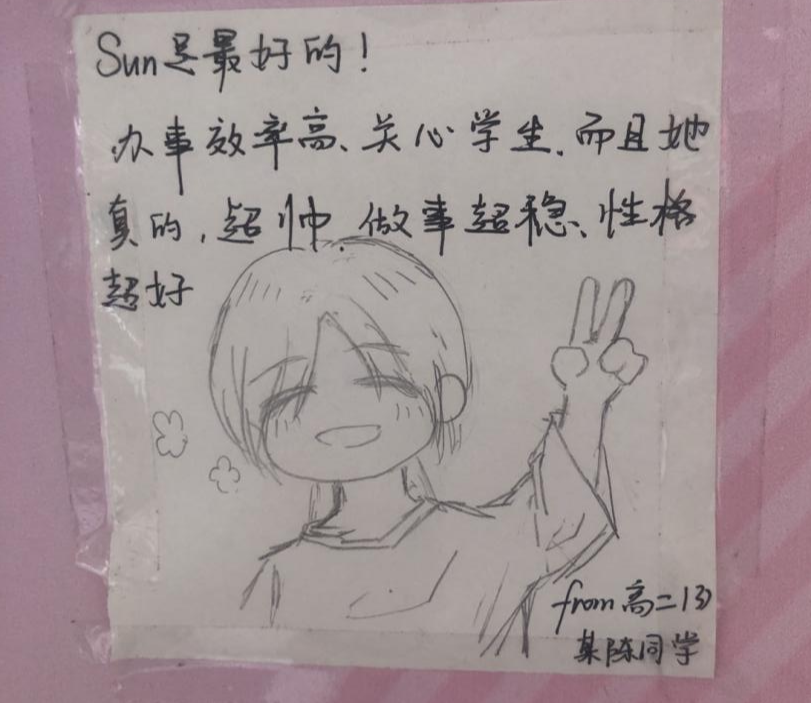 Sun是最好的！
办事效率高、关心学生、而且她
真的，超帅、做事超稳、性格
超好
from 高二13)
某陈同学